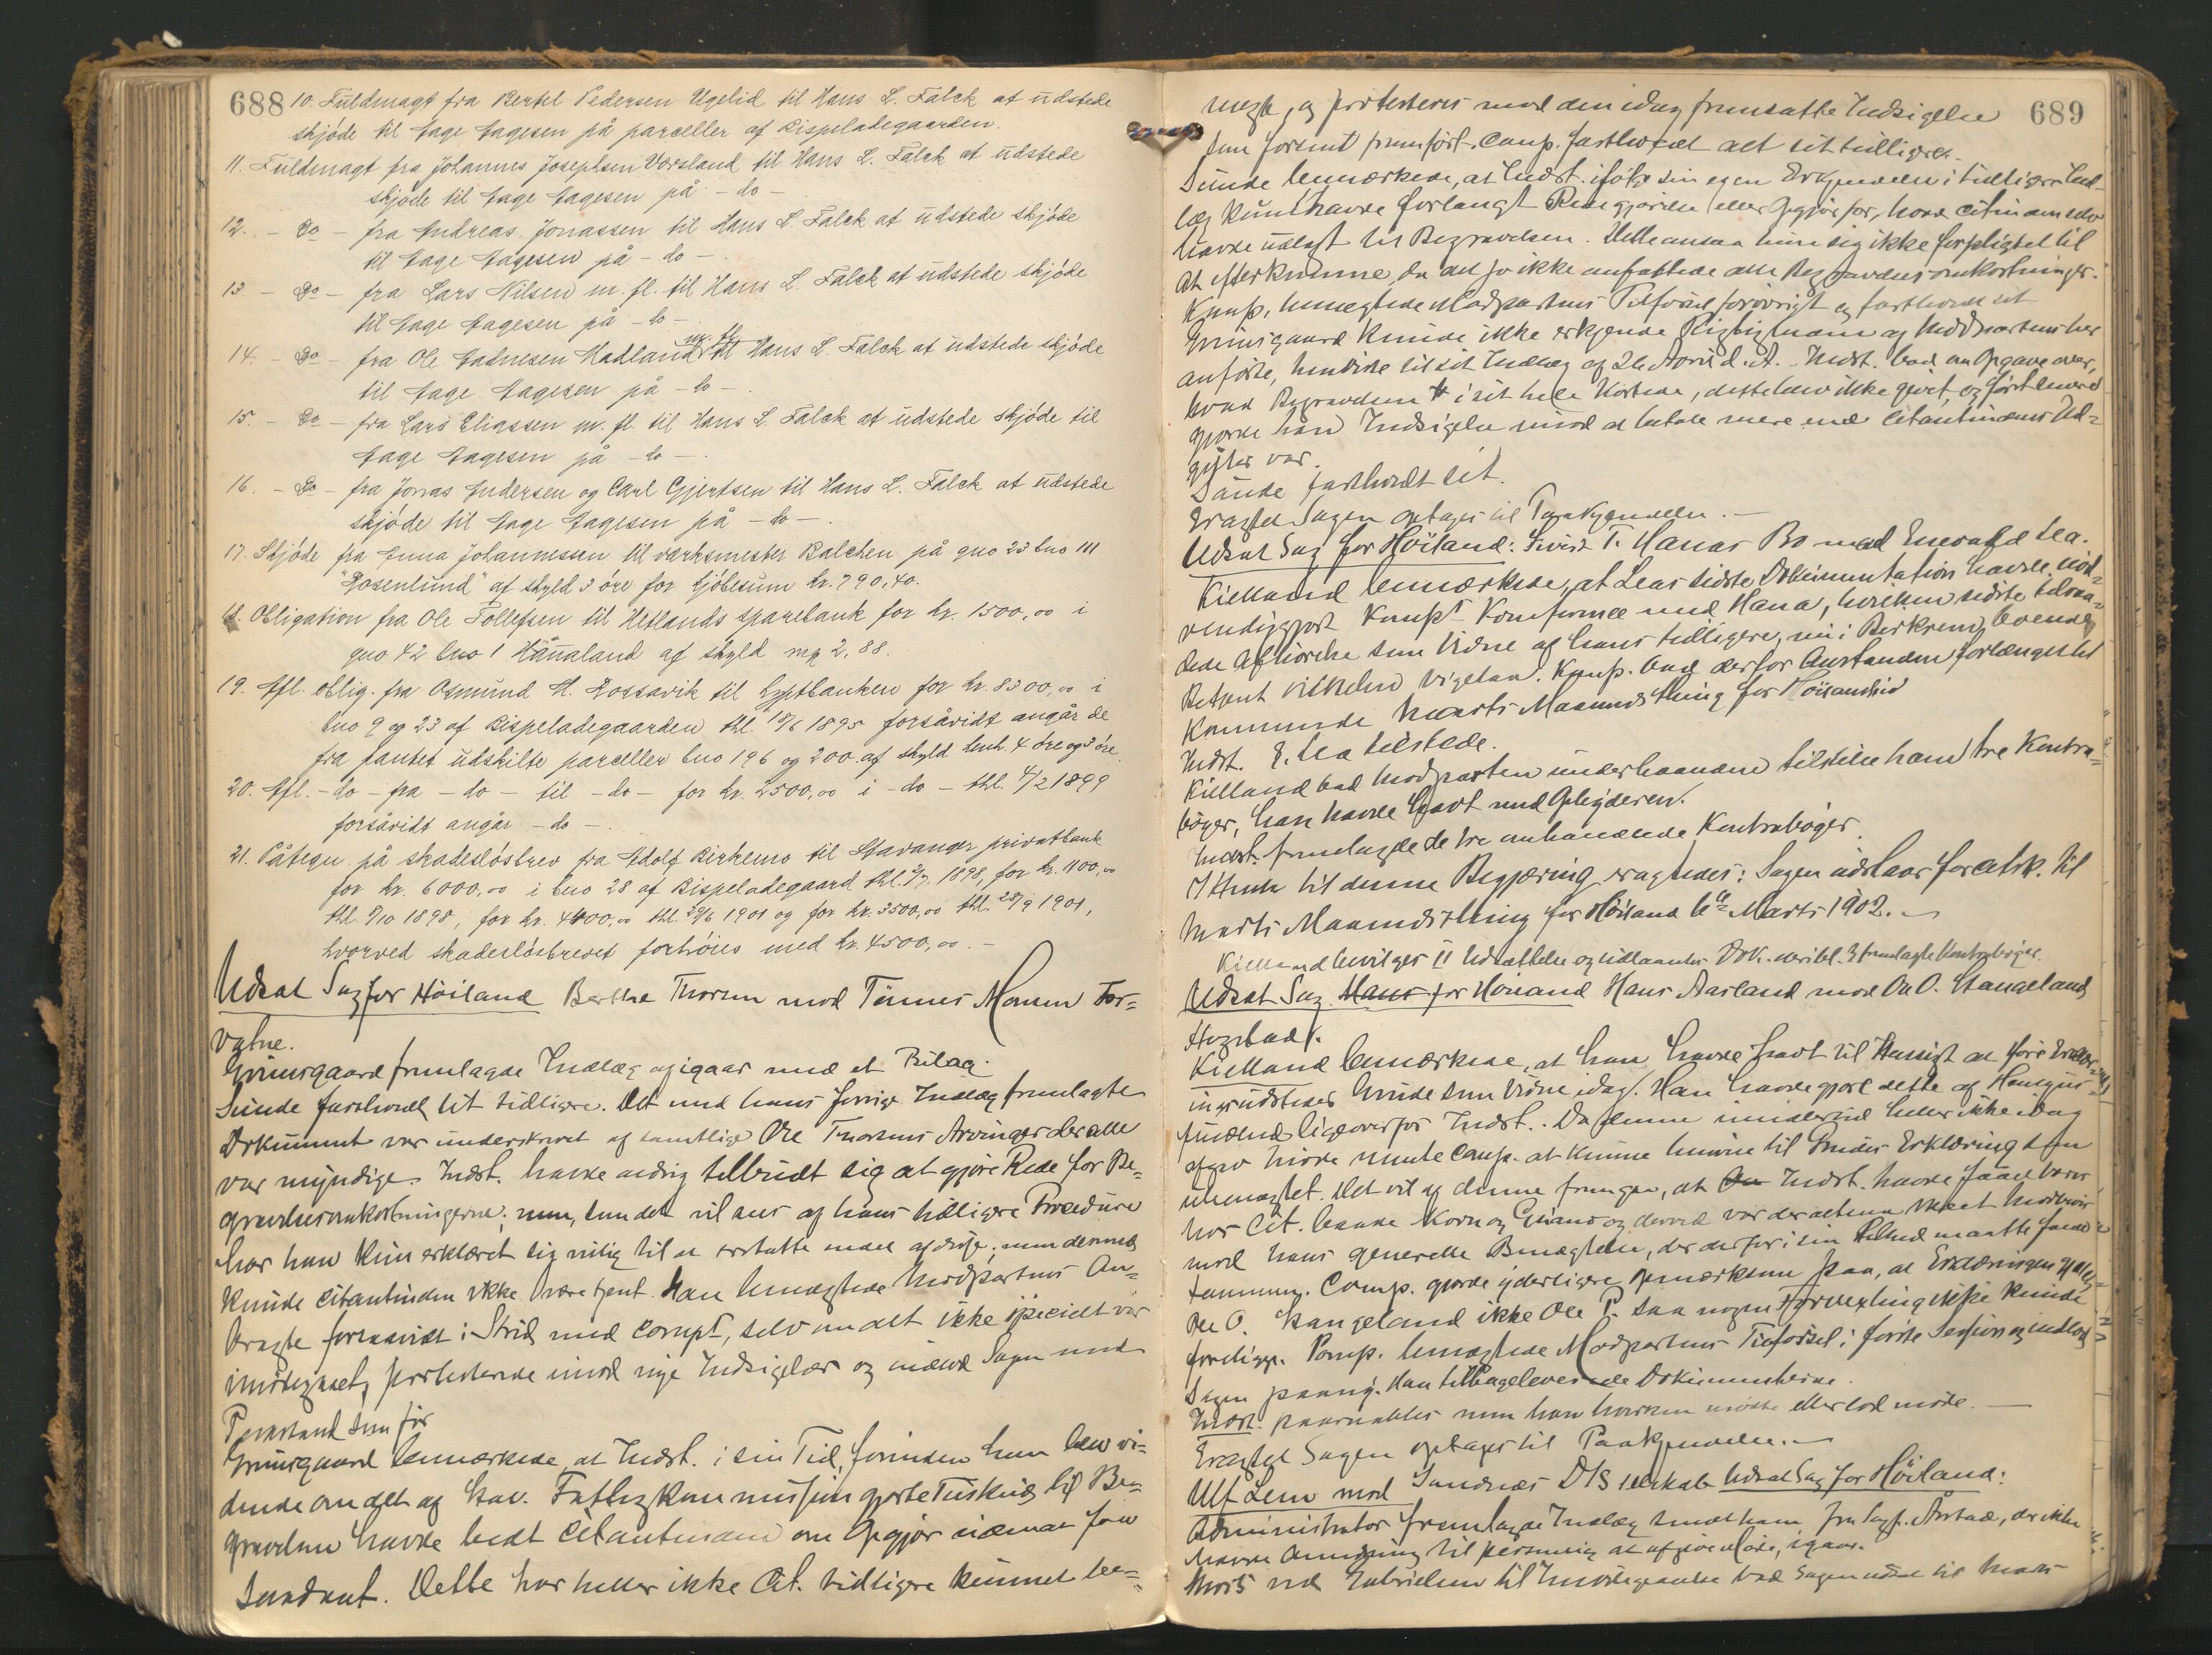 688
10. Fuldmagt fra Bertel Pedersen Ugelid til Hans L. Falck at udstede
skjøde til Aage Aagesen på parceller af Bispeladegaarden.
11. Fuldmagt fra Johannes Josephsen Værsland til Hans L. Falck at udstede
skjøde til Aage Aagesen på - do -
12. - Do - fra Andreas Jonassen til Hans L. Falck at udstede skjøde
til Aage Aagesen på - do -.
13. - Do - fra Lars Nilsen m. fl. til Hans L. Falck at udstede skjøde
til Aage Aagesen på - do -
14. - Do - fra Ole Gadnesen Hadland m. fl. til Hans L. Falck at udstede skjøde
til Aage Aagesen på - do -.
15. - Do - fra Lars Eliassen m. fl. til Hans L. Falck at udstede skjøde til
Aage Aagesen på - do -.
16. - Do - fra Jonas Andersen og Carl Gjertsen til Hans L. Falck at udstede
skjøde til Aage Aagesen på - do -
17. Skjøde fra Anna Johannessen til værksmester Balchen på gno 23 bno 111
"Rosenlund" af skyld 3 øre for kjøbesum kr. 790,40.
18. Obligation fra Ole Tollefsen til Hetlands sparebank for kr. 1500,00 i
gno 42 bno 1 Hånaland af skyld mk 2,88.
19. Afl. oblig. fra Osmund H. Hossavik til hyptbanken for kr. 8300,00 i
bno 9 og 23 af Bispeladegaarden thl. 18/6 1895 forsåvidt angår de
fra pantet udskilte parceller bno 196 og 200 af skyld henh. 4 øre og 3 øre.
20. Afl. - do - fra - do - til - do - for kr. 2500,00 i - do - thl. 4/2 1899
forsåvidt angår - do -.
21. Påtegn. på skadesløsbrev fra Adolf Birkemo til Stavanger privatbank
for kr. 6000,00 i bno 28 af Bispeladegaard thl. 2/7 1898, for kr. 1100,00
thl. 8/10 1898, for kr. 4400,00 thl 29/6 1901 og for kr. 3500,00 thl. 28/9 1901,
hvorved skadesløsbrevet forhøies med kr. 4500,00. -
Udsat Sag for Høiland Berthe Thorsen mod Tønnes Monsen For=
vatne.
Grimsgaard fremlagde Indlæg af igaar med et Bilag.
Sunde fastholdt sit tidligere. Det med hans forrige Indlæg fremlagte
Dokument var underskrevet af samtlige Ole Thorsens Arvinger der alle
var myndige. Indst. havde aldrig tilbudt sig at gjøre Rede for Be=
gravelsesomkostningerne; men, som det vil sees af hans tidligere Procedure
har han kun erklæret sig villig til at erstatte endel af disse; men dermed
kunde Citantinden ikke være tjent. Han benegtede Modpartens An=
bragte forsaavidt i Strid med Compt, selv om det ikke specielt var
imødegaaet, protesterede imod nye Indsigelser og indlod Sagen med
Paastand som før
Grimsgaard bemærkede, at Indst. i sin Tid, forinden han blev vi=
dende om det af Stav. Fattigkommission gjorte Tilskud til Be=
gravelsen havde bedt Citantinden om Opgjør sidenaa for
Sandnæs. Dette har heller ikke Cit. tidligere kunnet be=
689
negte, og protesteres mod den idag fremsatte Indsigelse
som forsent fremført. Comp. fastholdt alt sit tidligere.
Sunde bemærkede, at Indst. ifølge sin egen Erkjendelse i tidligere Ind=
læg kun havde forlangt Redegjørelse eller Opgjør for, hvad Citin. am selv
havde udlagt til Begravelsen. Dette ansaa hun sig ikke forpligtet til
at efterkomme, da det jo ikke omfattede alle Begravelsesomkostninger.
Komp. benegtede Modpartens Tilførsel forøvrigt og fastholdt sit
Grimsgaard kunde ikke erkjende Rigtigheden af Modpartens her
anførte, henviste til sit Indlæg af 26 April d. A. Indst. bad om Opgave over,
hvad Begravelsen i sit hele kostede, dette blev ikke givet, og først derved
gjorde han Indsigelse imod at betale mere end Citantindens Ud=
gifter var.
Sunde fastholdt sit.
Eragtet Sagen optages til Paakjendelse. -
Udsat Sag for Høiland: Sivert T. Hanas Bo mod Enevald Lea.
Kielland bemærkede, at Leas sidste Dokumentation havde nød=
vendiggjort Compt Konference med Hana, hvilken sidste tilraa=
dede Afhørelse som Vidne af hans tidligere, nu i Birkrem boende
Betjent Vilhelm Vigeland. Komp. bad derfor Anstanden forlænget til
kommende Marts Maanedsthing for Høiland
Indst. E. Lea tilstede.
Kielland bad Modparten underhaanden tilstille ham tre Kontra=
bøger, han havde havt med Opbyderen.
Indst. fremlagde de tre omhandlede Kontrabøger.
I Henh. til denne Begjæring eragtedes: Sagen udstaar for afsk. til
Marts Maanedsthing for Høiland 6te Marts 1902. -
Kielland bevilges II Udsættelse og udlaantes Dok. deribl. 3 fremlagte Kontrabøger.
Udsat Sag for Høiland Hans Aarland mod Ole O. Stangeland,
Hogstad.
Kielland bemærkede, at han havde havt til Hensigt at føre Erklær=
ingsudsteder Gunde som Vidne idag. Han havde gjort dette af Hensyns=
fuldhed ligeoverfor Indst. Da denne imidlertid heller ikke idag
afgav Møde mente Comp. at kunne henvise til Gundes Erklæring som
ubenegtet. Det vil af denne fremgaa, at Indst. havde faaet Varer
hos Cit. baade Korn og Guano og derved var der altsaa ført Modbevis
mod hans generelle Benegtelse, der derfor i sin Helhed maatte falde
sammen. Comp. gjorde yderligere opmærksom paa, at Erklæringen gjaldt
Ole O. Stangeland ikke Ole P. saa nogen Forvexling ikke kunde
foreligge. Komp. benegtede Modpartens Tilførsel i første Session og indlod
Sagen paany. Han tilbageleverede Dokumenterne.
Indst. paaraabtes men han hverken mødte eller lod møde. -
Eragtet Sagen optages til Paakjendelse. -
Ulf Lem mod Sandnæs D/S selskab Udsat Sag for Høiland:
Administrator fremlagde Indlæg sendt ham fra Sagf. Aarstad, der ikke
havde Anledning til personlig at afgive Møde, igaar.
Moss ved Gabrielsen til Imødegaaelse bad Sagen udsat til Marts